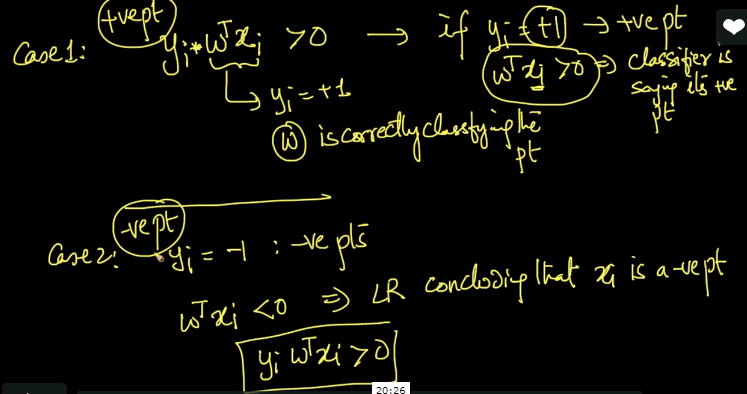 +ve pt
Case 1: yᵢ * wᵀxᵢ > 0 → if yᵢ = +1 → +ve pt
wᵀxᵢ > 0 ⇒ classifier is
saying its +ve
pt
↳ yᵢ = +1
w is correctly classifying the
pt
-ve pt
Case 2: yᵢ = -1 : -ve pts
wᵀxᵢ < 0 ⇒ LR concluding that xᵢ is a -ve pt
yᵢ wᵀxᵢ > 0
20:26